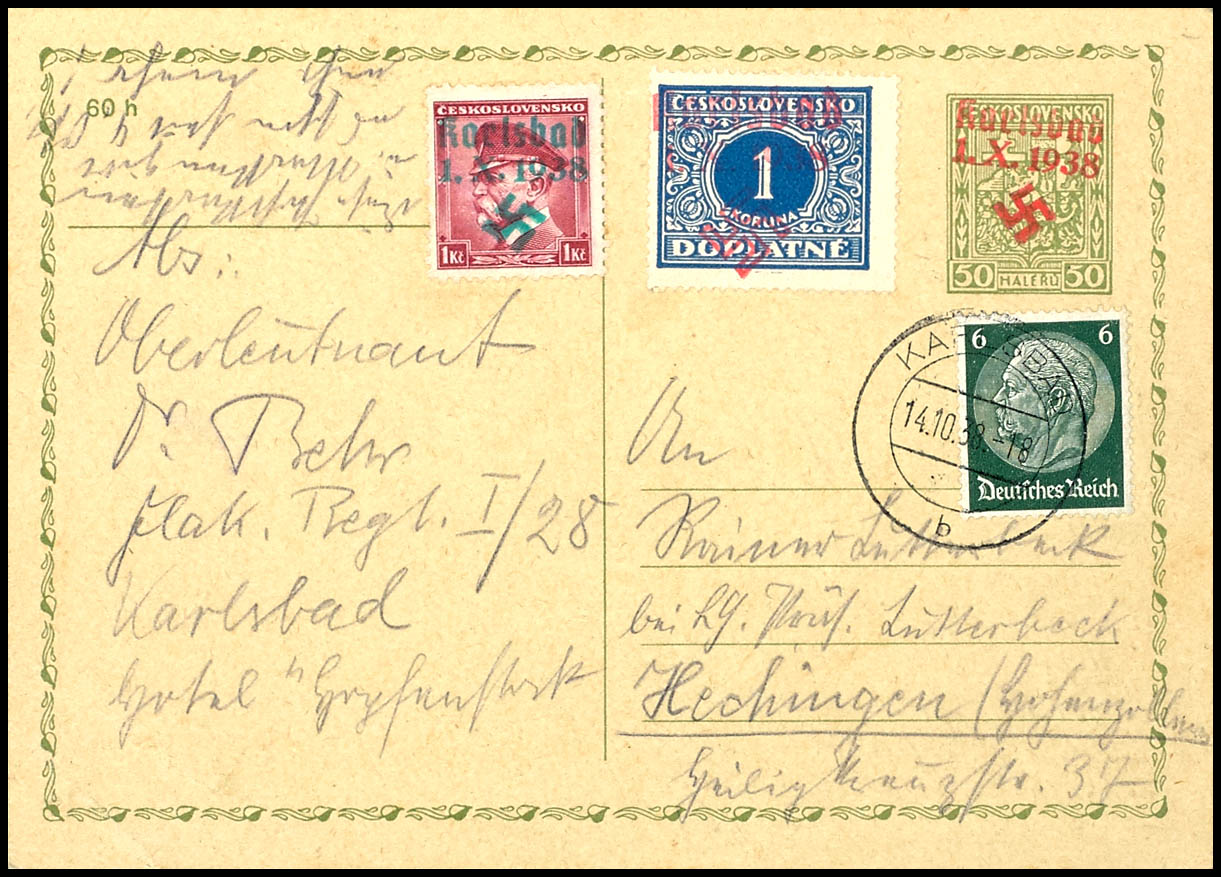 60 h
ČESKOSLOVENSKO
Karlsbad
1. X. 1938
1 Kč 1 Kč
ČESKOSLOVENSKO
1
KORUNA
DOPLATNÉ
ČESKOSLOVENSKO
Karlsbad
1. X. 1938
50 HALÉŘŮ 50
6 6
Deutsches Reich
KARLSBAD
14.10.38.-18
b
Abs:
Oberleutnant
Dr. Behr
Flak. Regt. I/28
Karlsbad
Hotel "Hopfenstock
An
Rainer Lutterbeck
bei LG. Präs. Lutterbeck
Hechingen (Hohenzollern
Heiligkreuzstr. 37